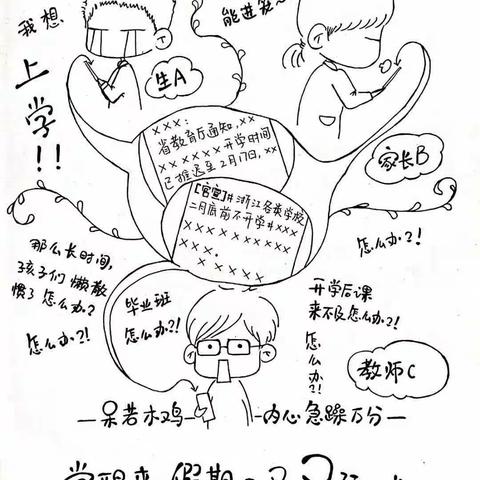 我想
上
学!!
生A
家长B
×××:
省教育厅通知,××
××××××开学时间
已推迟至2月17次,××
[官宣]#浙江各类学校
二月底前不开学#×××
×××××××××
×××.
×××××
那么长时间,
孩子们懒散
惯了怎么办?
怎么办?!
毕业班
怎么办?!
怎么办?!
开学后课
来不及怎么办?!
怎么办?!
教师C
—呆若木鸡—
—内心急躁万分—